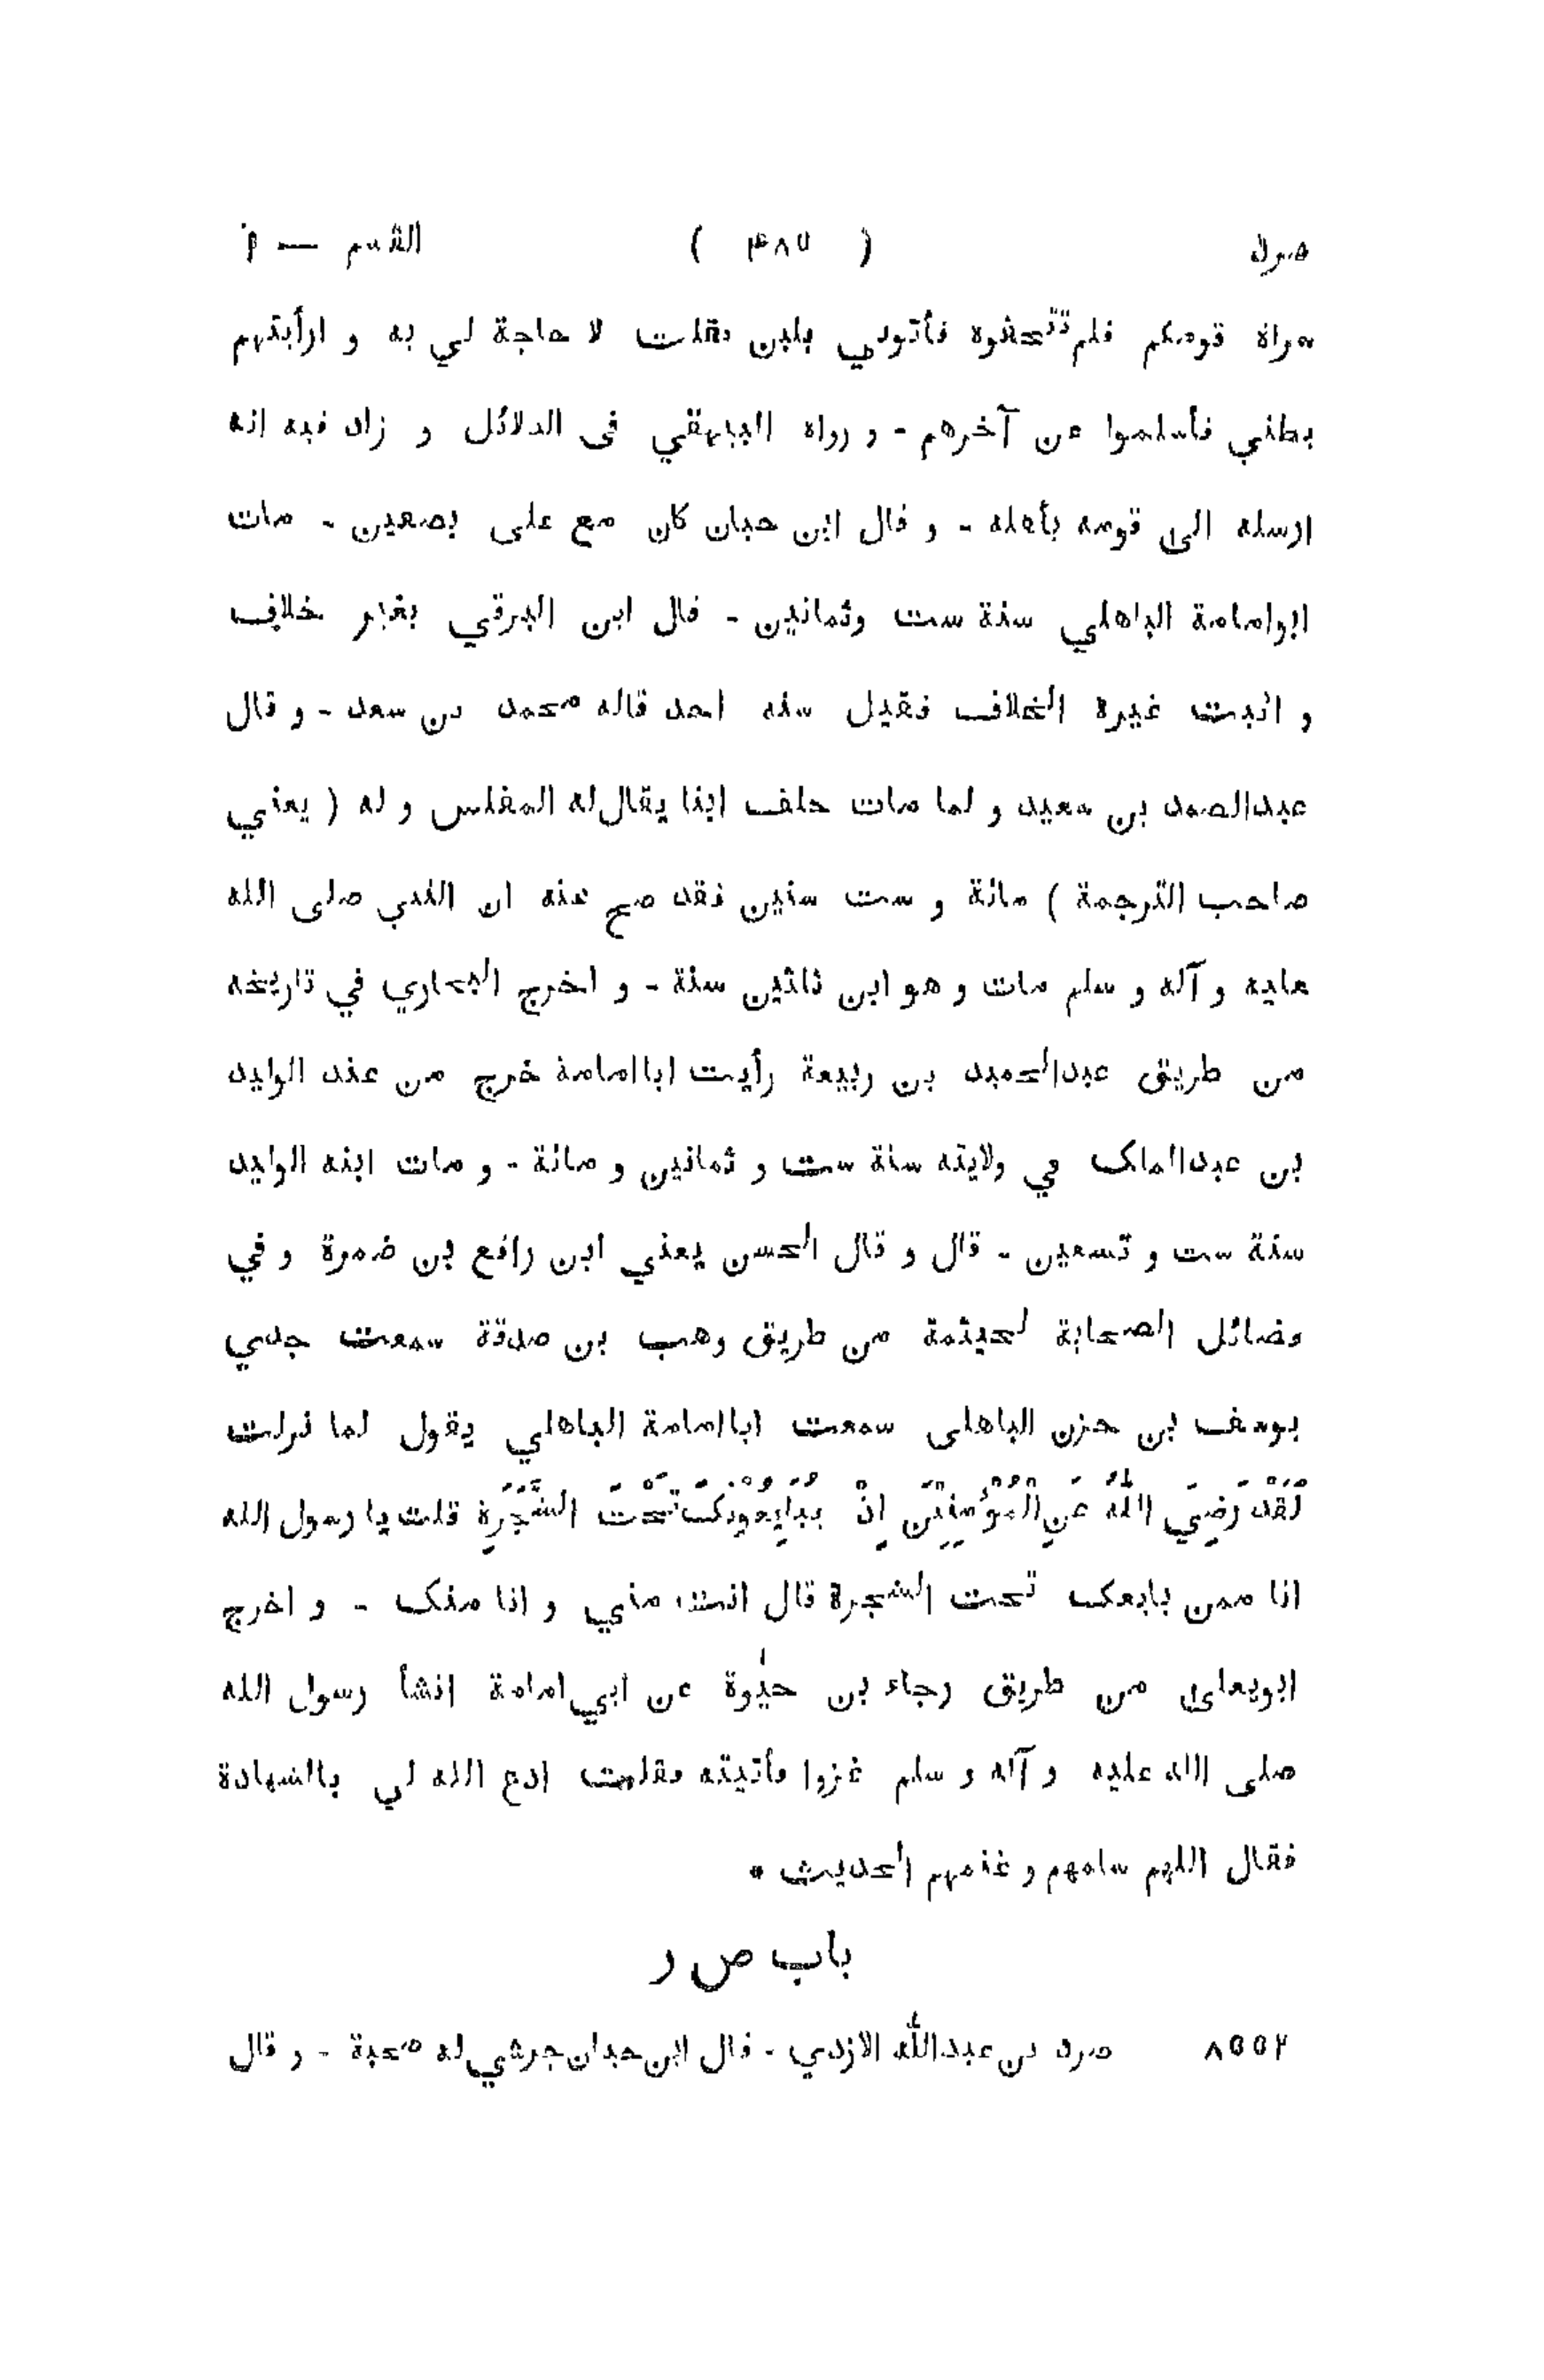 صرد ( ۴۸۵ ) القسم — ۱
سراة قومكم فلم تتحفوه فأتوني بلبن فقلت لا حاجة لي به و ارأيتهم
بطني فأسلموا عن آخرهم - و رواه البيهقي فى الدلائل و زاد فيه انه
ارسله الى قومه بأهله - و قال ابن حبان كان مع على بصفين - مات
ابوامامة الباهلي سنة ست وثمانين - قال ابن البرقي بغير خلاف
و اثبت غيره الخلاف فقيل سنه احد قاله محمد بن سعد - و قال
عبدالصمد بن سعيد و لما مات خلف ابنا يقال له المغلس و له ( يعني
صاحب الترجمة ) مائة و ست سنين فقد صح عنه ان النبي صلى الله
عليه و آله و سلم مات و هو ابن ثلثين سنة - و اخرج البخاري في تاريخه
من طريق عبدالحميد بن ربيعة رأيت اباامامة خرج من عند الوليد
بن عبدالملک في ولايته سنة ست و ثمانين و مائة - و مات ابنه الوليد
سنة ست و تسعين - قال و قال الحسن يعني ابن رافع بن ضمرة و في
فضائل الصحابة لخيثمة من طريق وهب بن صدقة سمعت جدي
يوسف بن حزن الباهلى سمعت اباامامة الباهلي يقول لما نزلت
لَقَدْ رَضِيَ اللّٰهُ عَنِ الْمُؤْمِنِيْنَ اِذْ يُبَايِعُوْنَكَ تَحْتَ الشَّجَرَةِ قلت يا رسول الله
انا ممن بايعک تحت الشجرة قال انت مني و انا منک - و اخرج
ابويعلى من طريق رجاء بن حيٰوة عن ابي امامة انشأ رسول الله
صلى الله عليه و آله و سلم غزوا فأتيته فقلت ادع الله لي بالشهادة
فقال اللهم سلمهم و غنمهم الحديث *
باب ص ر
۸۵۵۲ صرد بن عبدالله الازدي - قال ابن حبان جرشي له صحبة - و قال